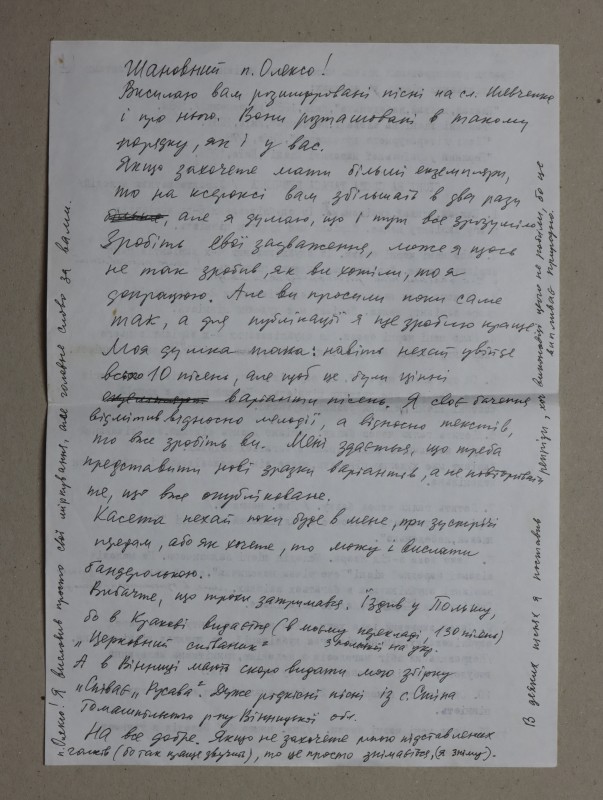 Шановний п. Олексо!
Висилаю вам розшифровані пісні на сл. Шевченка
і про нього. Вони розташовані в такому
порядку, як і у вас.
Якщо захочете мати більші екземпляри,
то на ксероксі вам збільшать в два рази
більше, але я думаю, що і тут все зрозуміло.
Зробіть свої зауваження, може я щось
не так зробив, як ви хотіли, то я
допрацюю. Але ви просили поки саме
так, а для публікації я ще зроблю краще
Моя думка така: навіть нехай увійде
всього 10 пісень, але щоб це були цінні
екземпляри варіанти пісень. Я своє бачення
відмітив відносно мелодії, а відносно текстів,
то вже зробіть ви. Мені здається, що треба
представити нові зразки варіантів, а не повторювати
те, що вже опубліковане.
Касета нехай поки буде в мене, при зустрічі
передам, або як хочете, то можу і вислати
бандеролькою.
Вибачте, що трохи затримався. Їздив у Польщу,
бо в Кракові видається (в моєму перекладі, 130 пісень)
"Церковний співаник" з польської на укр.
А в Вінниці мають скоро видати мою збірку
"Співає "Русава". Дуже рідкісні пісні із с.
Томашпільського р-ну Вінницької обл.
На все добре. Якщо не захочете мною підставлених
голосів (бо так краще звучить), то це просто знімається, (я зніму).
п. Олексо! Я висловив просто свої міркування, але головне слово за вами.
В деяких піснях я поставив репризи, хоч виконавці цього не робили, бо це
випливає природно.